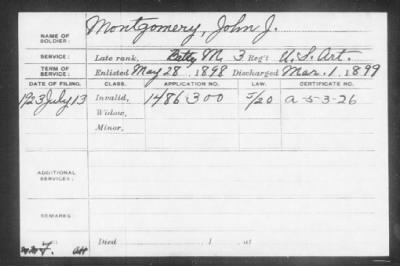 NAME OF SOLDIER: Montgomery, John J.
SERVICE: Late rank, Batty M, 3 Reg't U.S. Art.
TERM OF SERVICE: Enlisted May 28, 1898 Discharged Mar. 1, 1899
DATE OF FILING. CLASS. APPLICATION NO. LAW. CERTIFICATE NO.
1923 July 13 Invalid, 1486300 5/20 a-5-3-26
Widow,
Minor,
ADDITIONAL SERVICES:
REMARKS:
Died , 1 , at